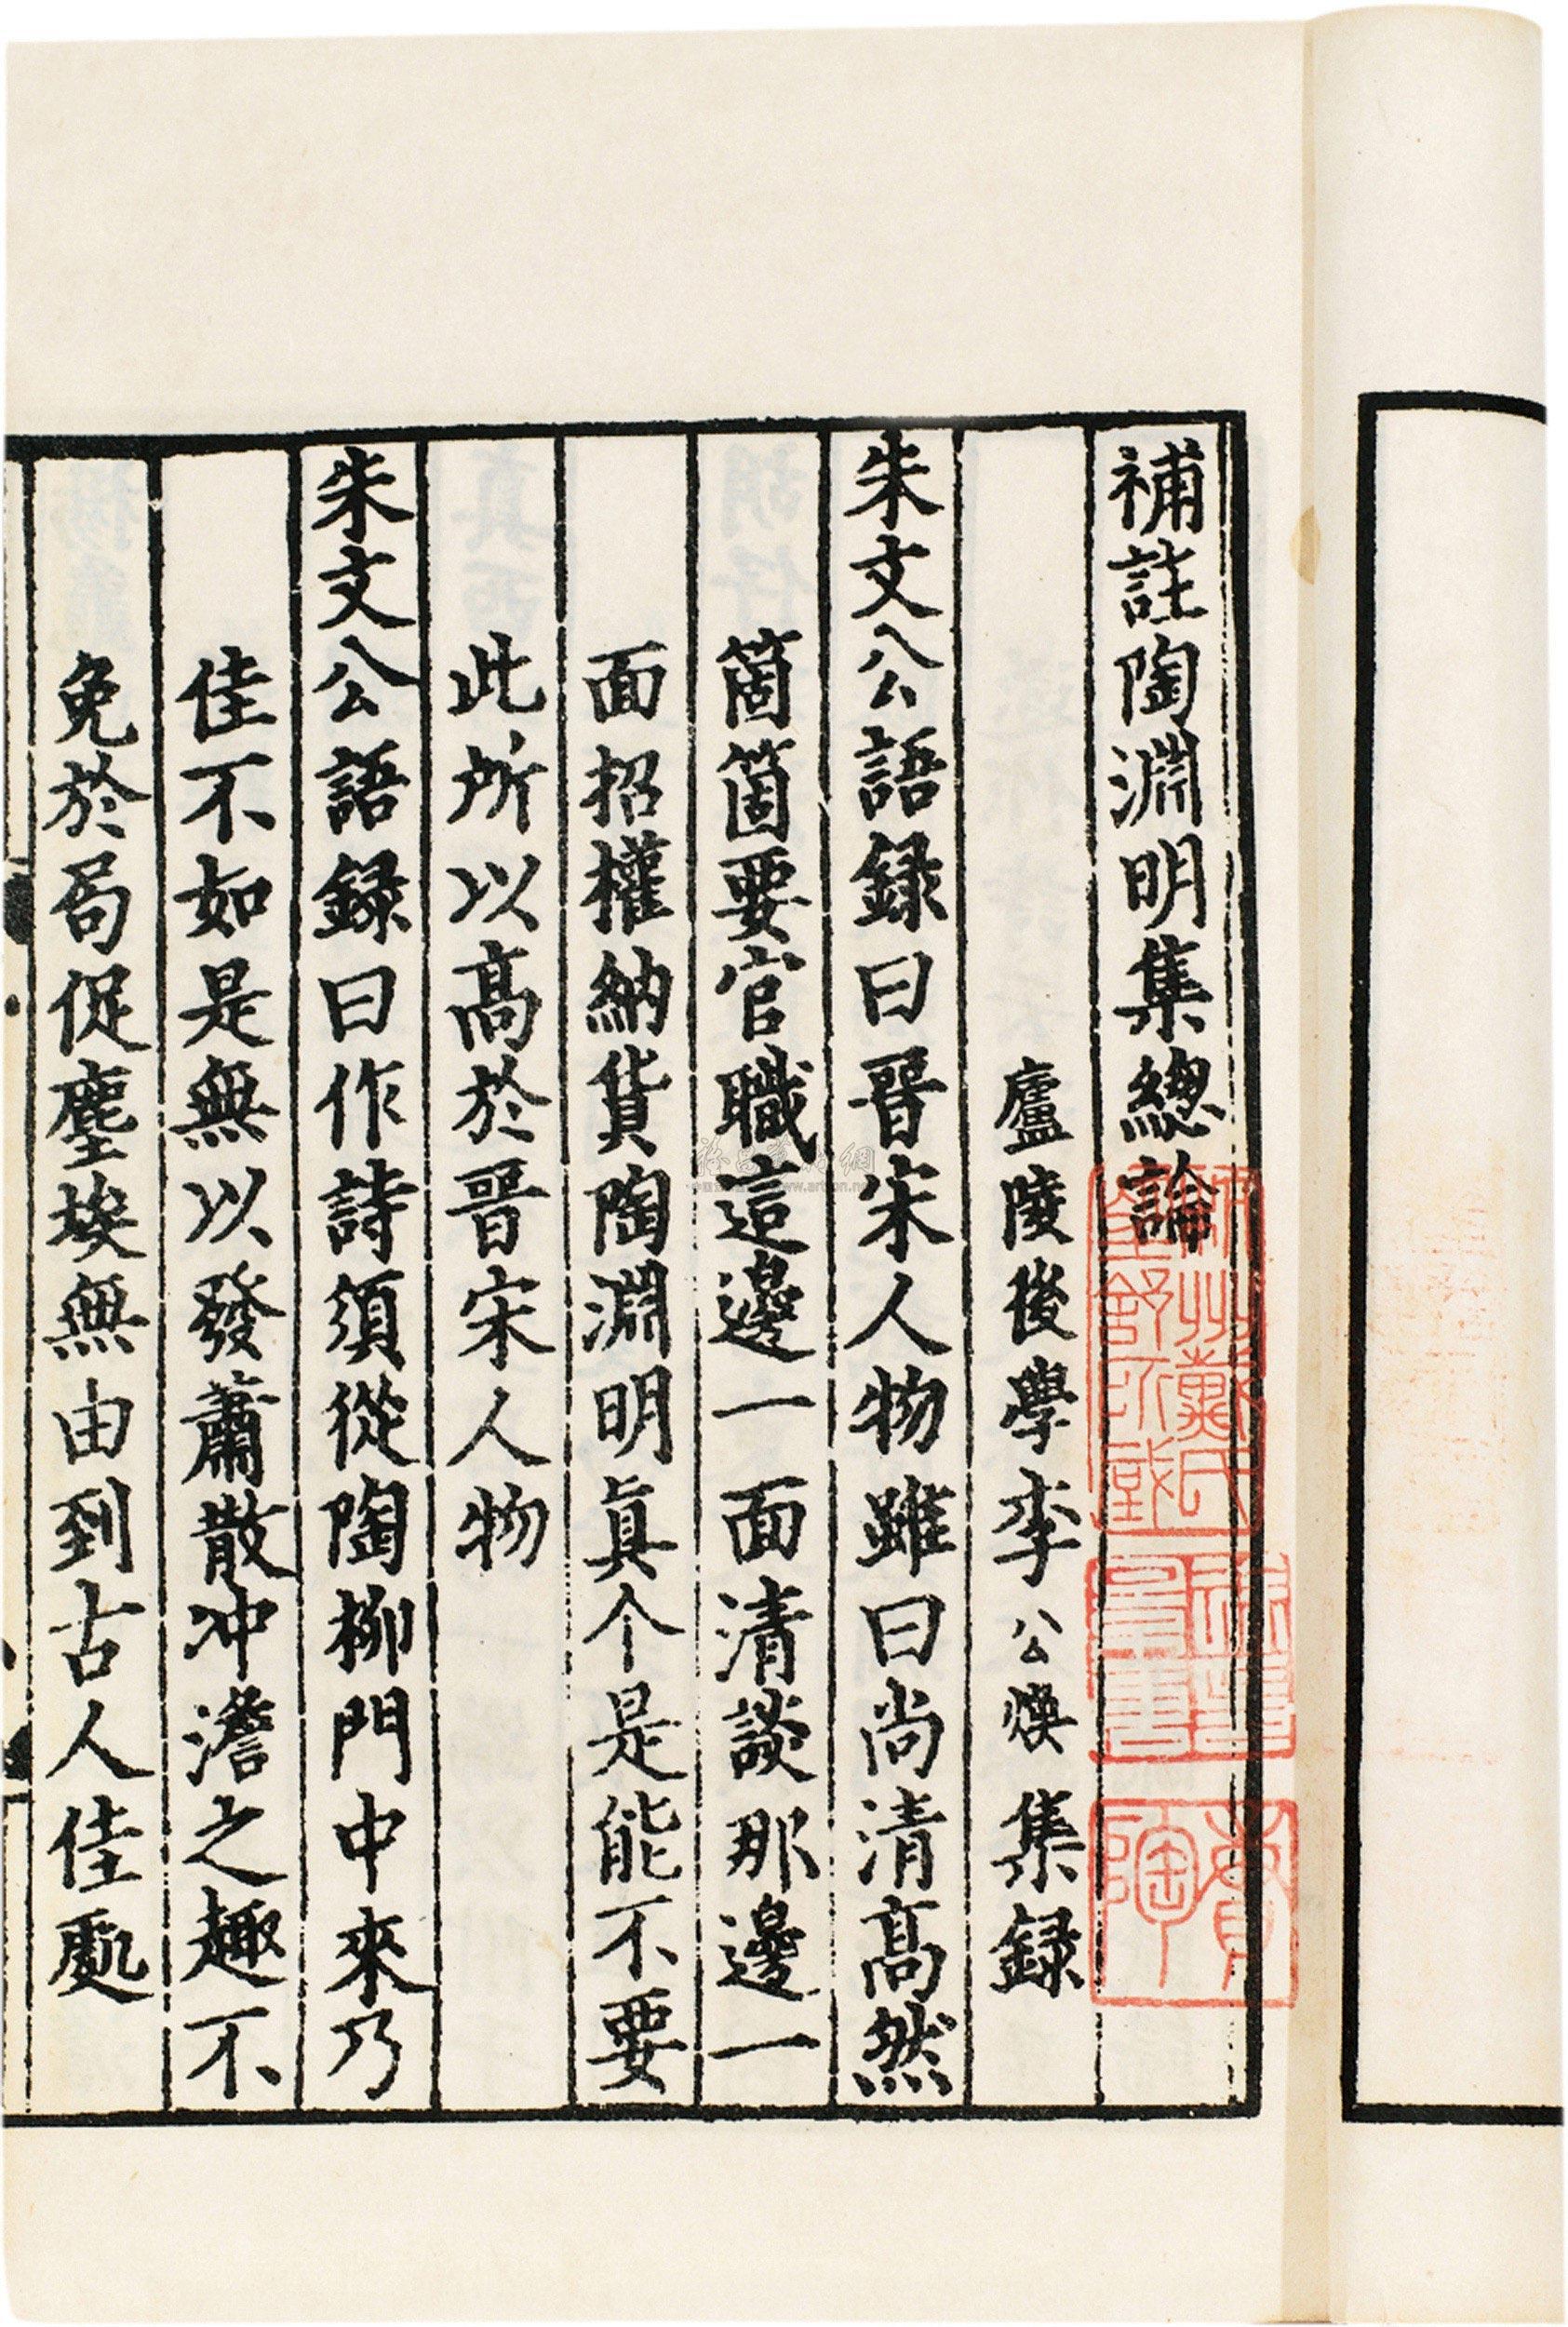 補註陶淵明集總論
廬陵後學李公煥集録
朱文公語録曰晉宋人物雖曰尚清高然
箇箇要官職這邊一面清談那邊一
面招權納貨陶淵明眞个是能不要
此所以高於晉宋人物
朱文公語録曰作詩須從陶柳門中來乃
佳不如是無以發蕭散冲澹之趣不
免於局促塵埃無由到古人佳處